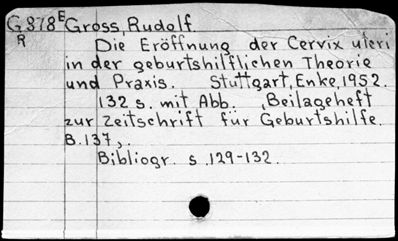 G 878 E Gross, Rudolf.
R
Die Eröffnung der Cervix uteri
in der geburtshilflichen Theorie
und Praxis. Stuttgart, Enke, 1952.
132 s. mit Abb. , Beilageheft
zur Zeitschrift für Geburtshilfe.
B. 137, .
Bibliogr. s. 129-132.